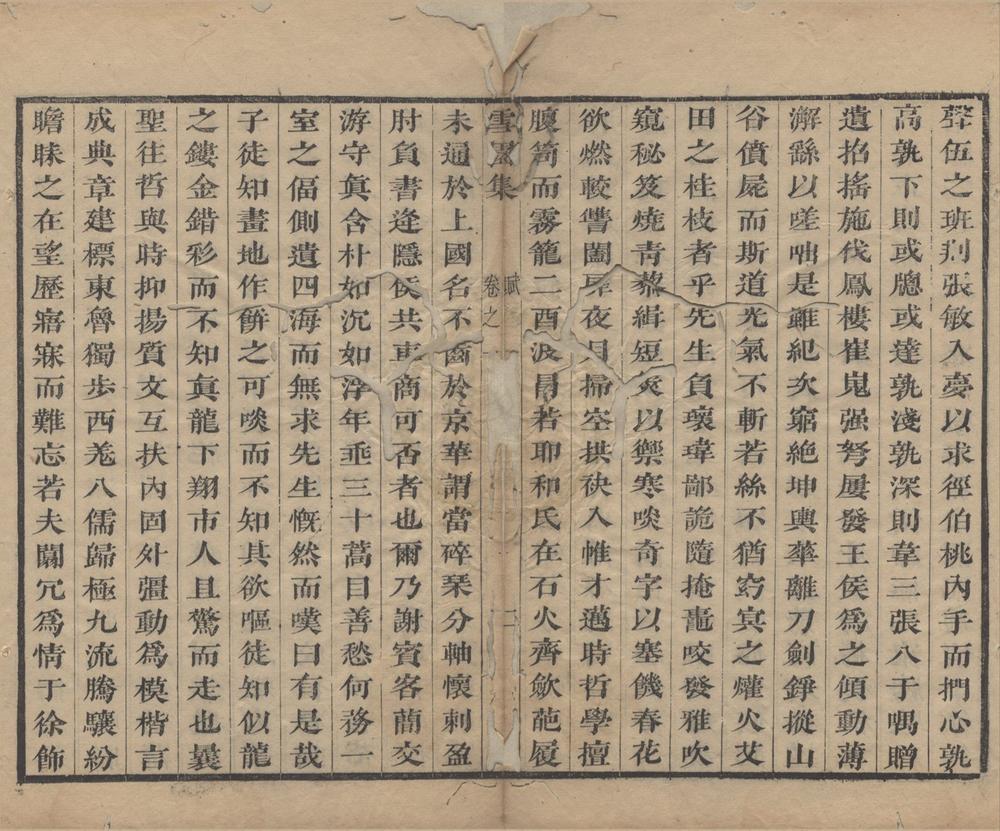 聲伍之班列張敏入夢以求徑伯桃內手而捫心孰
高孰下則或牕或達孰淺孰深則韋三張八于喁贈
遺招搖施伐鳳樓崔嵬强弩屢發王侯爲之傾動薄
澥繇以嗟咄是雖紀次窮絶坤輿華離刀劍錚摐山
谷僨屍而斯道光氣不斬若絲不猶窈冥之爟火艾
田之桂枝者乎先生負瓌瑋鄙詭隨掩鼃咬發雅吹
窺秘笈燒青藜緝短炎以禦寒啖奇字以塞饑春花
欲燃較讐闔犀夜月掃空拱袂入帷才邁時哲學擅
腹笥而霧籠二酉波易若耶和氏在石火齊歛葩履
雪罨集 賦 卷之 二
未通於上國名不齒於京華謂當碎琹分軸懷刺盈
肘負書逄隱侯共車商可否者也爾乃謝賓客蕳交
游守眞含朴如沉如浮年乖三十蒿目善愁何務一
室之偪側遺四海而無求先生慨然而嘆曰有是哉
子徒知畫地作餠之可啖而不知其欲嘔徒知似龍
之鏤金錯彩而不知眞龍下翔市人且驚而走也曩
聖往哲與時抑揚質文互扶內固外彊動爲模楷言
成典章建標東魯獨步西羗八儒歸極九流騰驤紛
瞻昧之在望歷寤寐而難忘若夫闒冗爲情于徐飾